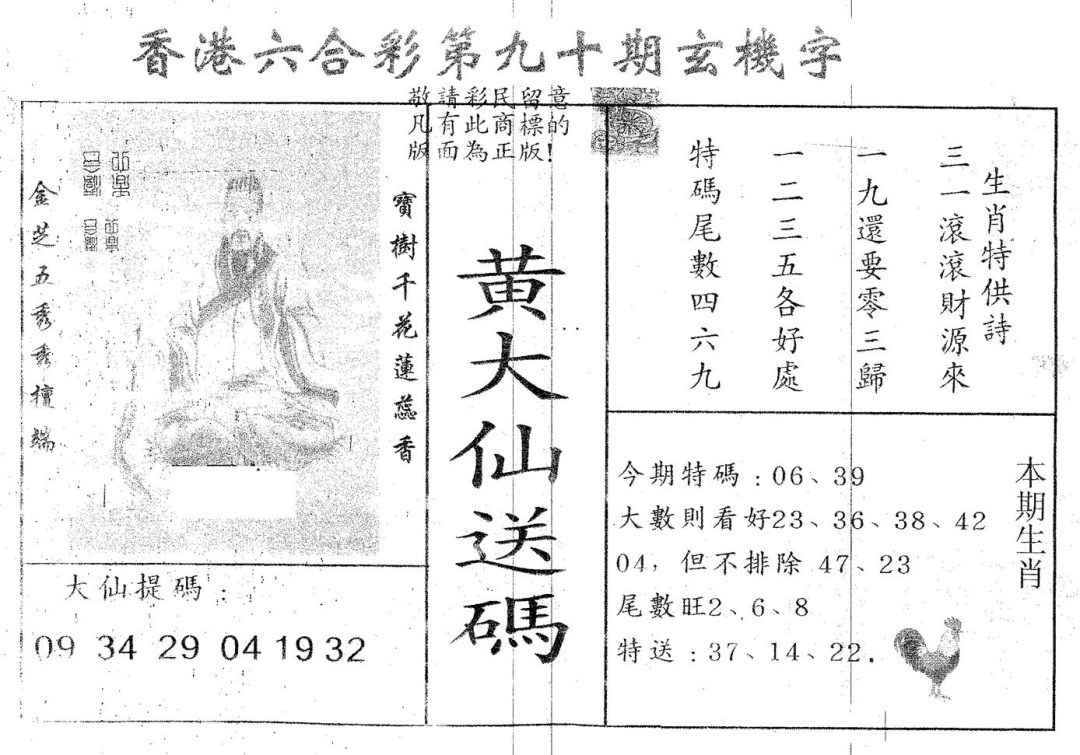 香港六合彩第九十期玄機字
敬請彩民留意
凡有此商標的
版面為正版!
寶樹千花蓮蕊香
金芝五秀秀擅端
大仙提碼：
09 34 29 04 19 32
黃大仙送碼
生肖特供詩
三一滾滾財源來
一九還要零三歸
一二三五各好處
特碼尾數四六九
本期生肖
今期特碼：06、39
大數則看好23、36、38、42
04，但不排除 47、23
尾數旺2、6、8
特送：37、14、22．